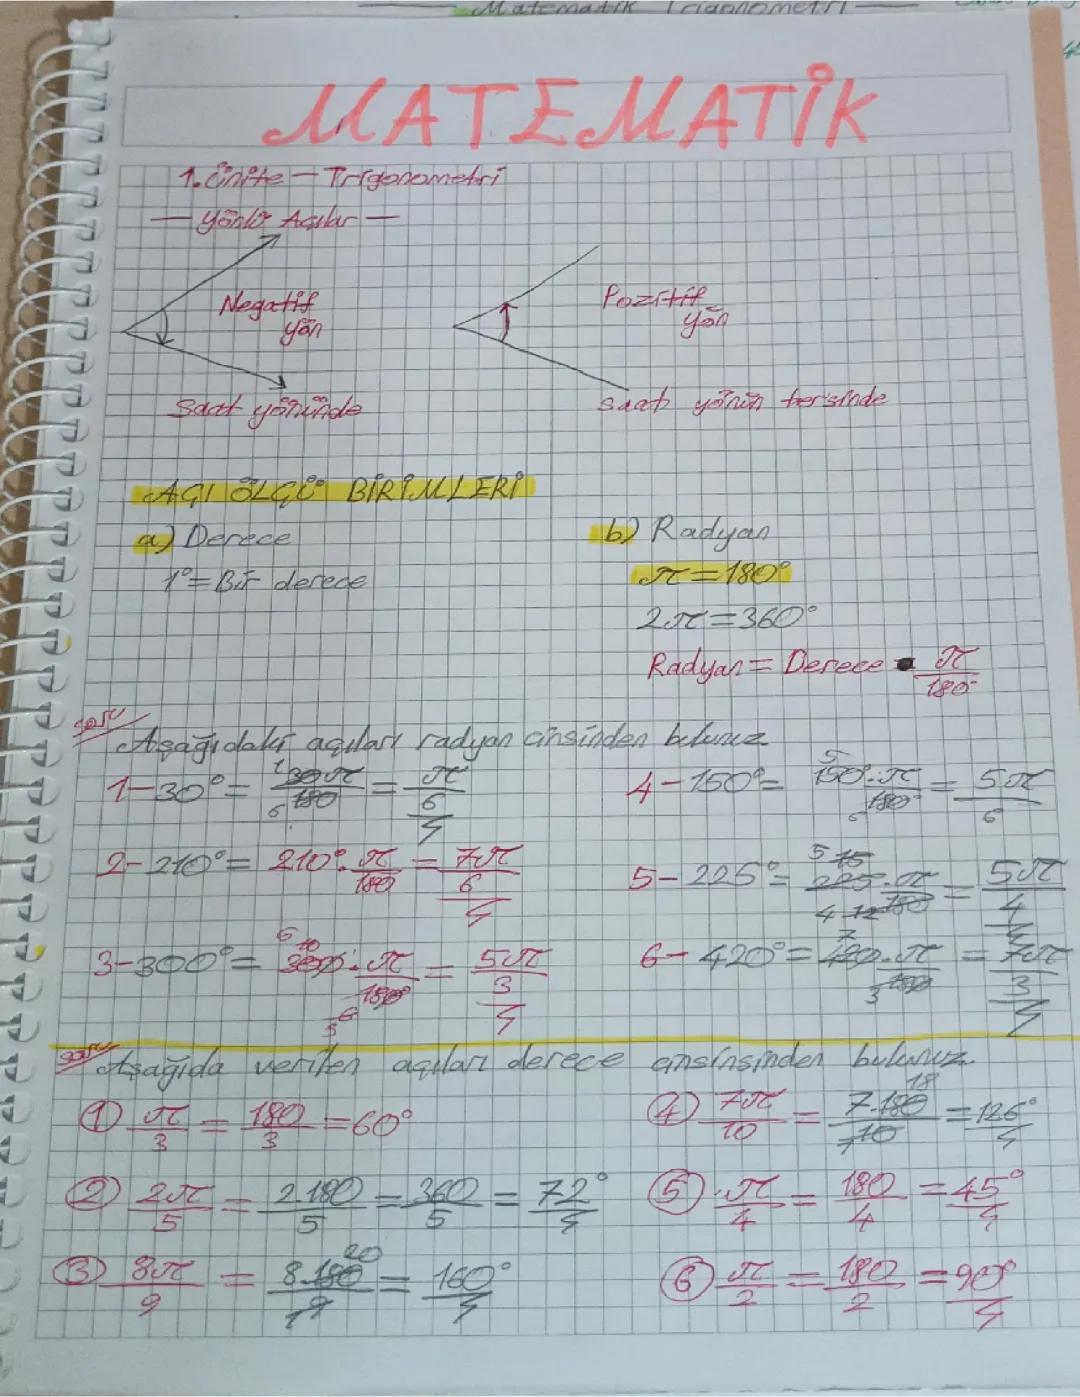 Matematik Trigonometri
MATEMATİK
1. Ünite — Trigonometri
— Yönlü Açılar —
Negatif yön
Pozitif yön
Saat yönünde
Saat yönün tersinde
AÇI ÖLÇÜ BİRİMLERİ
a) Derece
b) Radyan
1° = Bir derece
π = 180°
2π = 360°
Radyan = Derece • π/180°
soru Aşağıdaki açıları radyan cinsinden bulunuz
1- 30° = 30π/180 = π/6
4- 150° = 150°.π/180° = 5π/6
2- 210° = 210°.π/180 = 7π/6
5- 225° = 225.π/180 = 5π/4
3- 300° = 300°.π/180° = 5π/3
6- 420° = 420.π/180 = 7π/3
soru Aşağıda verilen açıları derece cinsinsinden bulunuz.
① π/3 = 180/3 = 60°
④ 7π/10 = 7.180/10 = 126°
② 2π/5 = 2.180/5 = 360/5 = 72°
⑤ π/4 = 180/4 = 45°
③ 8π/9 = 8.180/9 = 160°
⑥ π/2 = 180/2 = 90°